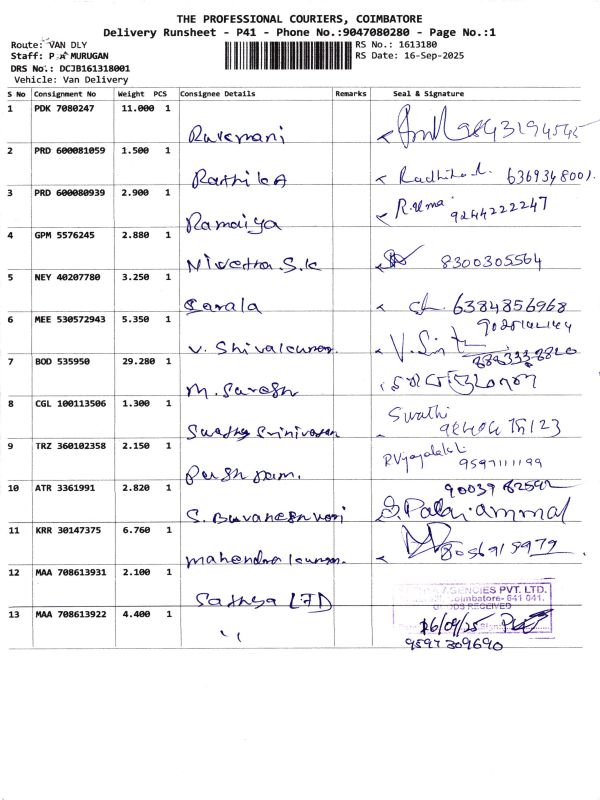 THE PROFESSIONAL COURIERS, COIMBATORE
Delivery Runsheet - P41 - Phone No.:9047080280 - Page No.:1
Route: VAN DLY
RS No.: 1613180
Staff: P MURUGAN
RS Date: 16-Sep-2025
DRS No.: DCJB161318001
Vehicle: Van Delivery
S No Consignment No Weight PCS Consignee Details Remarks Seal & Signature
1 PDK 7080247 11.000 1
Rukmani
2 PRD 600081059 1.500 1
RathikA 6369348001.
3 PRD 600080939 2.900 1
R.Uma
Ramaiya 9244222247
4 GPM 5576245 2.880 1
Nivetha.S.k 8300305564
5 NEY 40207780 3.250 1
Sarala 6384856968
6 MEE 530572943 5.350 1
V. Shivakumar.
7 BOD 535950 29.280 1
M. Suresh
8 CGL 100113506 1.300 1
Swathi
Swathy Srinivasan
9 TRZ 360102358 2.150 1
Pushpam. 9597111199
10 ATR 3361991 2.820 1
S. Buvaneshwari S. Palaniammal
11 KRR 30147375 6.760 1
mahendrakumar. 8056915979
12 MAA 708613931 2.100 1
Sathya LTD
AGENCIES PVT. LTD.
Coimbatore- 641 041.
GOODS RECEIVED
13 MAA 708613922 4.400 1
16/09/25
9597309690